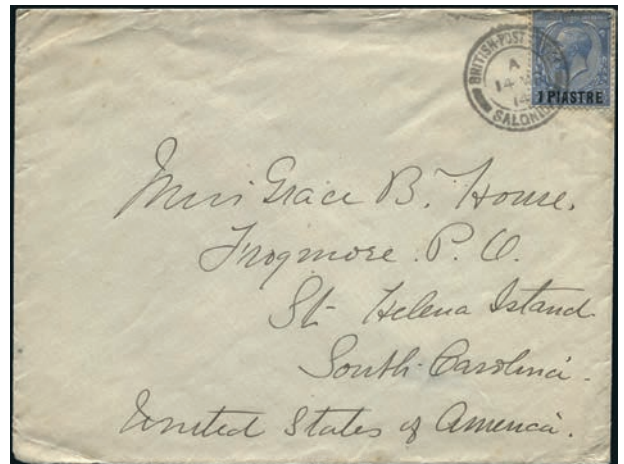 BRITISH POST
A
14
14
SALONI
1 PIASTRE
Miss Grace B. House.
Frogmore. P. O.
St Helena Island
South Carolina.
United States of America.